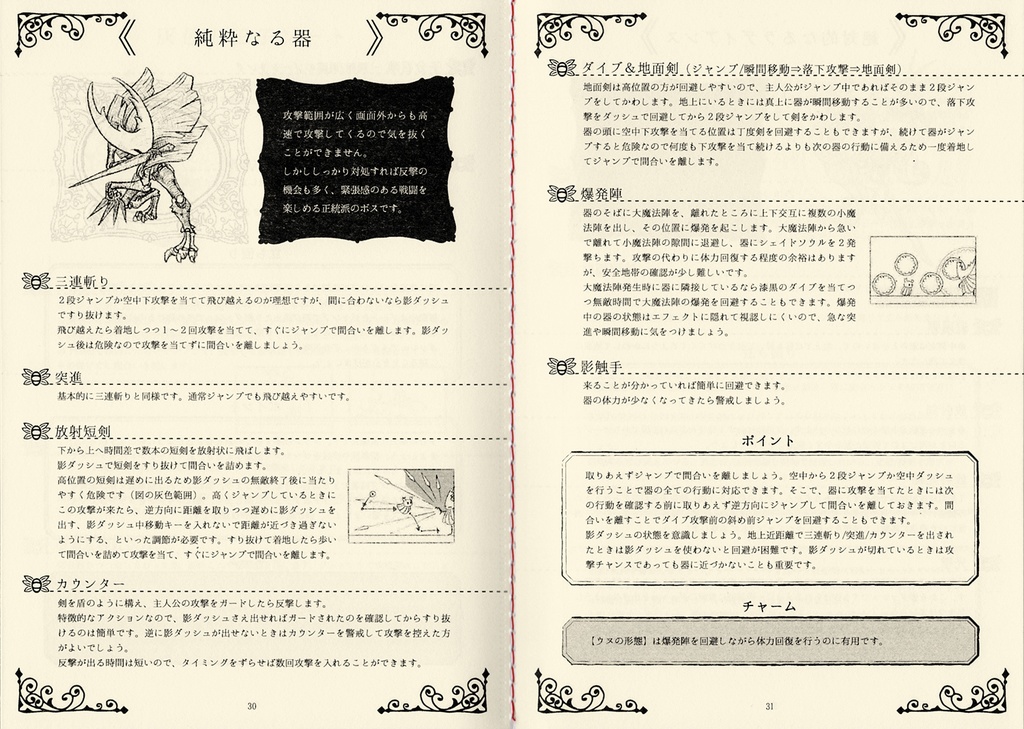 純粋なる器
攻撃範囲が広く画面外からも高
速で攻撃してくるので気を抜く
ことができません。
しかししっかり対処すれば反撃の
機会も多く、緊張感のある戦闘を
楽しめる正統派のボスです。
三連斬り
2段ジャンプか空中下攻撃を当てて飛び越えるのが理想ですが、間に合わないなら影ダッシュ
ですり抜けます。
飛び越えたら着地しつつ1～2回攻撃を当てて、すぐにジャンプで間合いを離します。影ダッ
シュ後は危険なので攻撃を当てずに間合いを離しましょう。
突進
基本的に三連斬りと同様です。通常ジャンプでも飛び越えやすいです。
放射短剣
下から上へ時間差で数本の短剣を放射状に飛ばします。
影ダッシュで短剣をすり抜けて間合いを詰めます。
高位置の短剣は遅めに出るため影ダッシュの無敵終了後に当たり
やすく危険です（図の灰色範囲）。高くジャンプしているときに
この攻撃が来たら、逆方向に距離を取りつつ遅めに影ダッシュを
出す、影ダッシュ中移動キーを入れないで距離が近づき過ぎない
ようにする、といった調節が必要です。すり抜けて着地したら歩い
て間合いを詰めて攻撃を当て、すぐにジャンプで間合いを離します。
カウンター
剣を盾のように構え、主人公の攻撃をガードしたら反撃します。
特徴的なアクションなので、影ダッシュさえ出せればガードされたのを確認してからすり抜
けるのは簡単です。逆に影ダッシュが出せないときはカウンターを警戒して攻撃を控えた方
がよいでしょう。
反撃が出る時間は短いので、タイミングをずらせば数回攻撃を入れることができます。
30
ダイブ＆地面剣（ジャンプ/瞬間移動⇒落下攻撃⇒地面剣）
地面剣は高位置の方が回避しやすいので、主人公がジャンプ中であればそのまま2段ジャン
プをしてかわします。地上にいるときには真上に器が瞬間移動することが多いので、落下攻
撃をダッシュで回避してから2段ジャンプをして剣をかわします。
器の頭に空中下攻撃を当てる位置は丁度剣を回避することもできますが、続けて器がジャン
プすると危険なので何度も下攻撃を当て続けるよりも次の器の行動に備えるため一度着地し
てジャンプで間合いを離します。
爆発陣
器のそばに大魔法陣を、離れたところに上下交互に複数の小魔
法陣を出し、その位置に爆発を起こします。大魔法陣から急い
で離れて小魔法陣の隙間に退避し、器にシェイドソウルを2発
撃ちます。攻撃の代わりに体力回復する程度の余裕はあります
が、安全地帯の確認が少し難しいです。
大魔法陣発生時に器に隣接しているなら漆黒のダイブを当てつ
つ無敵時間で大魔法陣の爆発を回避することもできます。爆発
中の器の状態はエフェクトに隠れて視認しにくいので、急な突
進や瞬間移動に気をつけましょう。
影触手
来ることが分かっていれば簡単に回避できます。
器の体力が少なくなってきたら警戒しましょう。
ポイント
取りあえずジャンプで間合いを離しましょう。空中から2段ジャンプか空中ダッシュ
を行うことで器の全ての行動に対応できます。そこで、器に攻撃を当てたときには次
の行動を確認する前に取りあえず逆方向にジャンプして間合いを離しておきます。間
合いを離すことでダイブ攻撃前の斜め前ジャンプを回避することもできます。
影ダッシュの状態を意識しましょう。地上近距離で三連斬り/突進/カウンターを出さ
れたときは影ダッシュを使わないと回避が困難です。影ダッシュが切れているときは攻
撃チャンスであっても器に近づかないことも重要です。
チャーム
【ウヌの形態】は爆発陣を回避しながら体力回復を行うのに有用です。
31